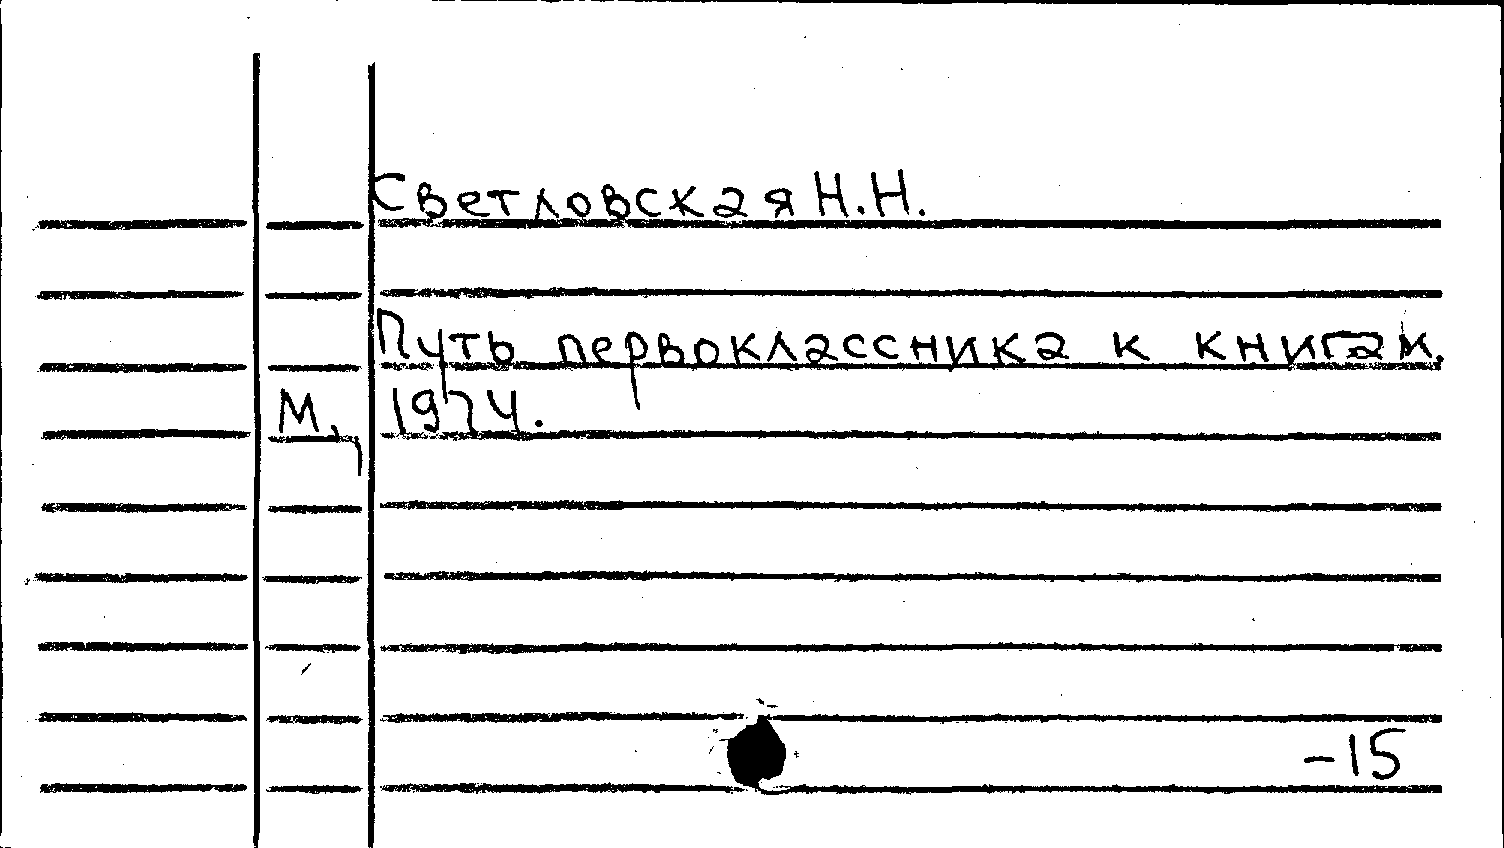 Светловская Н.Н.
Путь первоклассника к книгам.
М., 1974.
-15